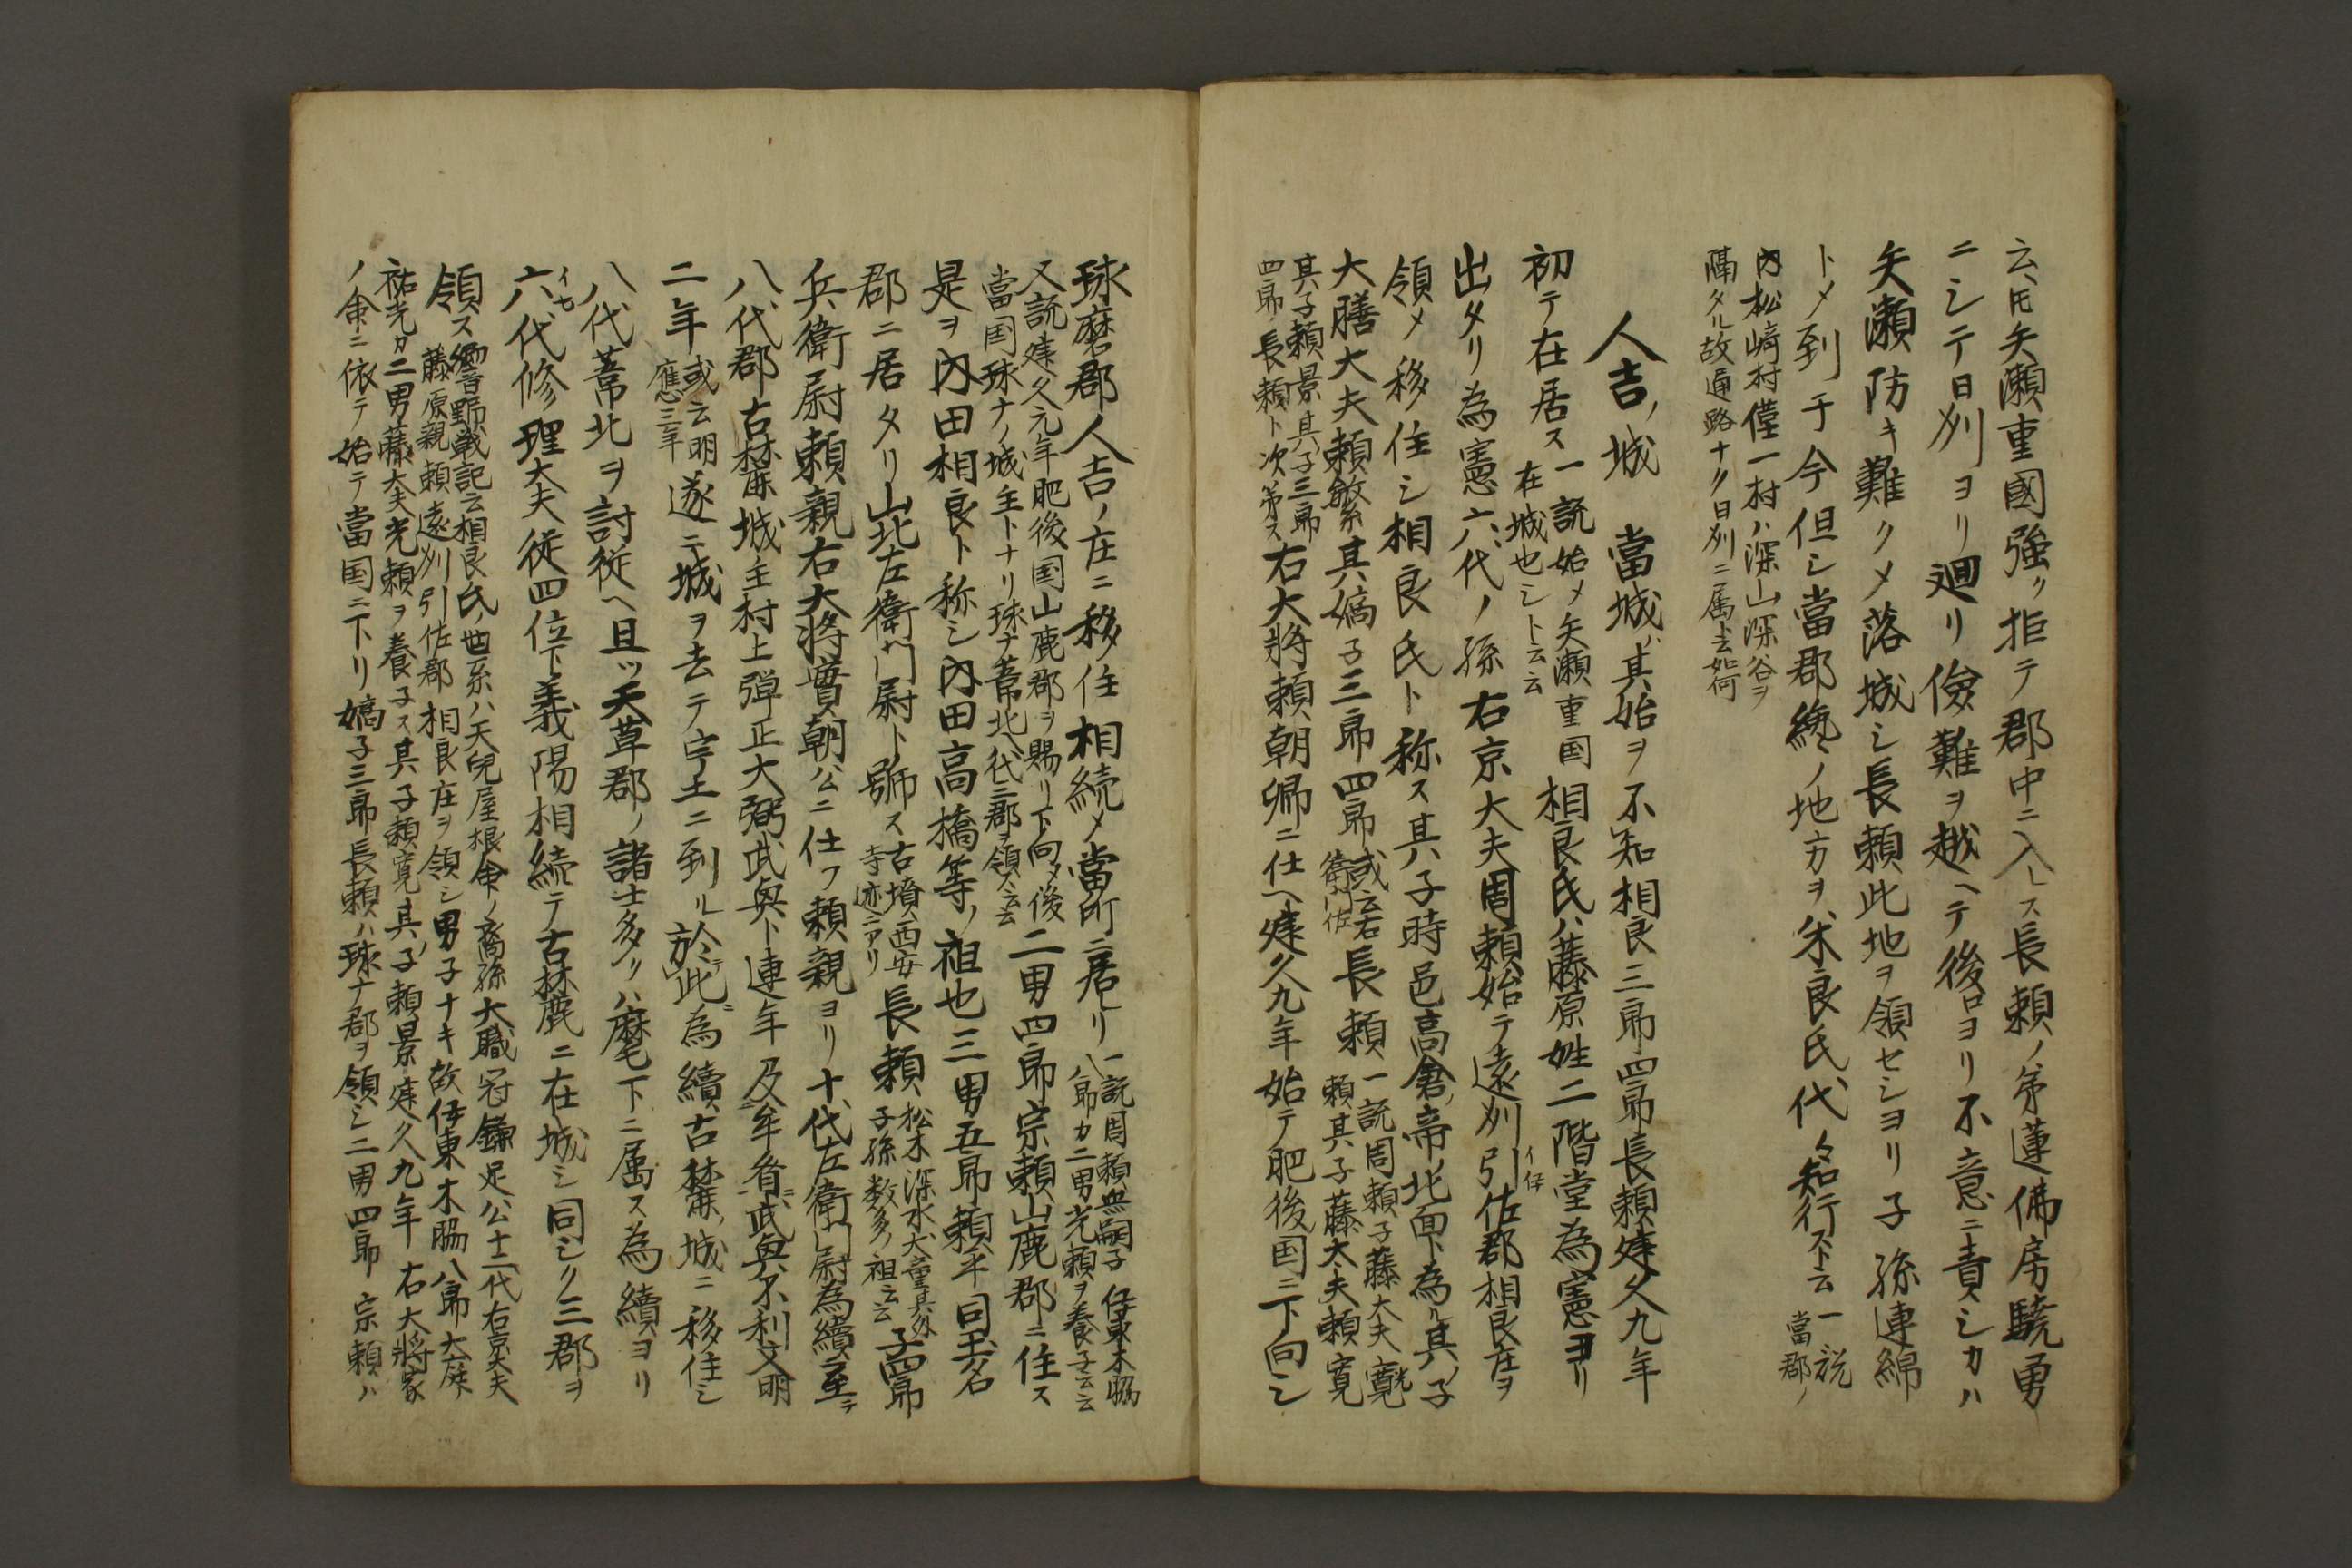 云ヘ𪜈矢瀬重國強ク拒テ郡中ニ入レス長頼ノ弟蓮佛房驍勇
ニシテ日刕ヨリ廻リ儉難ヲ越ヘテ後口ヨリ不意ニ責シカハ
矢瀬防キ難クメ落城シ長頼此地ヲ領セシヨリ子孫連綿
トメ到于今但シ當郡總ノ地方ヲ米良氏代々知行スト云 一説 當郡ノ
内松﨑村僅一村ハ深山深谷ヲ
隔タル故通路ナク日刕ニ属ト云如何
人吉ノ城 當城ハ其始ヲ不知相良三郎四郎長頼建久九年
初テ在居ス 一説始メ矢瀬重国
在城也シト云云 相良氏ハ藤原姓二階堂為憲ヨリ
出タリ為憲六代ノ孫右京大夫周頼始テ遠刕引イ伊佐郡相良庄ヲ
領メ移住シ相良氏ト称ス其子時邑高倉ノ帝北面ト為ル其ノ子
大膳大夫頼繁其嫡子三郎四郎 或云右
衛門佐 長頼 一説周頼子藤大夫光寛
頼其子藤大夫頼寛
其子頼景其子三郎
四郎長頼ト次第ス 右大將頼朝卿ニ仕ヘ建久九年始テ肥後国ニ下向シ
球磨郡人吉ノ庄ニ移住相続メ當所ニ居リ 一説周頼無嗣子伊東木脇
八郎カ二男光頼ヲ養子云云
又説建久元年肥後国山鹿郡ヲ賜リ下向メ後
當国球广ノ城主トナリ球广葦北八代三郡ヲ領ス云云 二男四郎宗頼山鹿郡ニ住ス
是ヲ内田相良ト称シ内田高橋等ノ祖也三男五郎頼平同玉名
郡ニ居タリ山北左衛門尉ト號ス 古墳ハ西安
寺迹ニアリ 長頼 松木深水犬童其外
子孫数多ノ祖云云 子四郎
兵衛尉頼親右大將實朝公ニ仕フ頼親ヨリ十代左衛門尉為續至テ
八代郡古麓城主村上弾正大弼武與ト連年及牟眉武與不利文明
二年 或云明
應三年 遂ニ城ヲ去テ宇土ニ到ル於テ此ニ為續古麓ノ城ニ移住シ
八代葦北ヲ討従ヘ且ツ天草郡ノ諸士多クハ麾下ニ属ス為續ヨリ
六イ七代修理大夫従四位下義陽相続テ古麓ニ在城シ同シク三郡ヲ
領ス 響野戦記云相良氏ノ世系ハ天兒屋根命ノ裔孫大職冠鎌足公十二代右京大夫
藤原親頼遠刕引佐郡相良庄ヲ領シ男子ナキ故伊東木脇八郎大夫
祐光カ二男藤大夫光頼ヲ養子ス其子頼寛其ノ子頼景建久九年右大將家
ノ命ニ依テ始テ當国ニ下リ嫡子三郎長頼ハ球广郡ヲ領シ二男四郎宗頼ハ